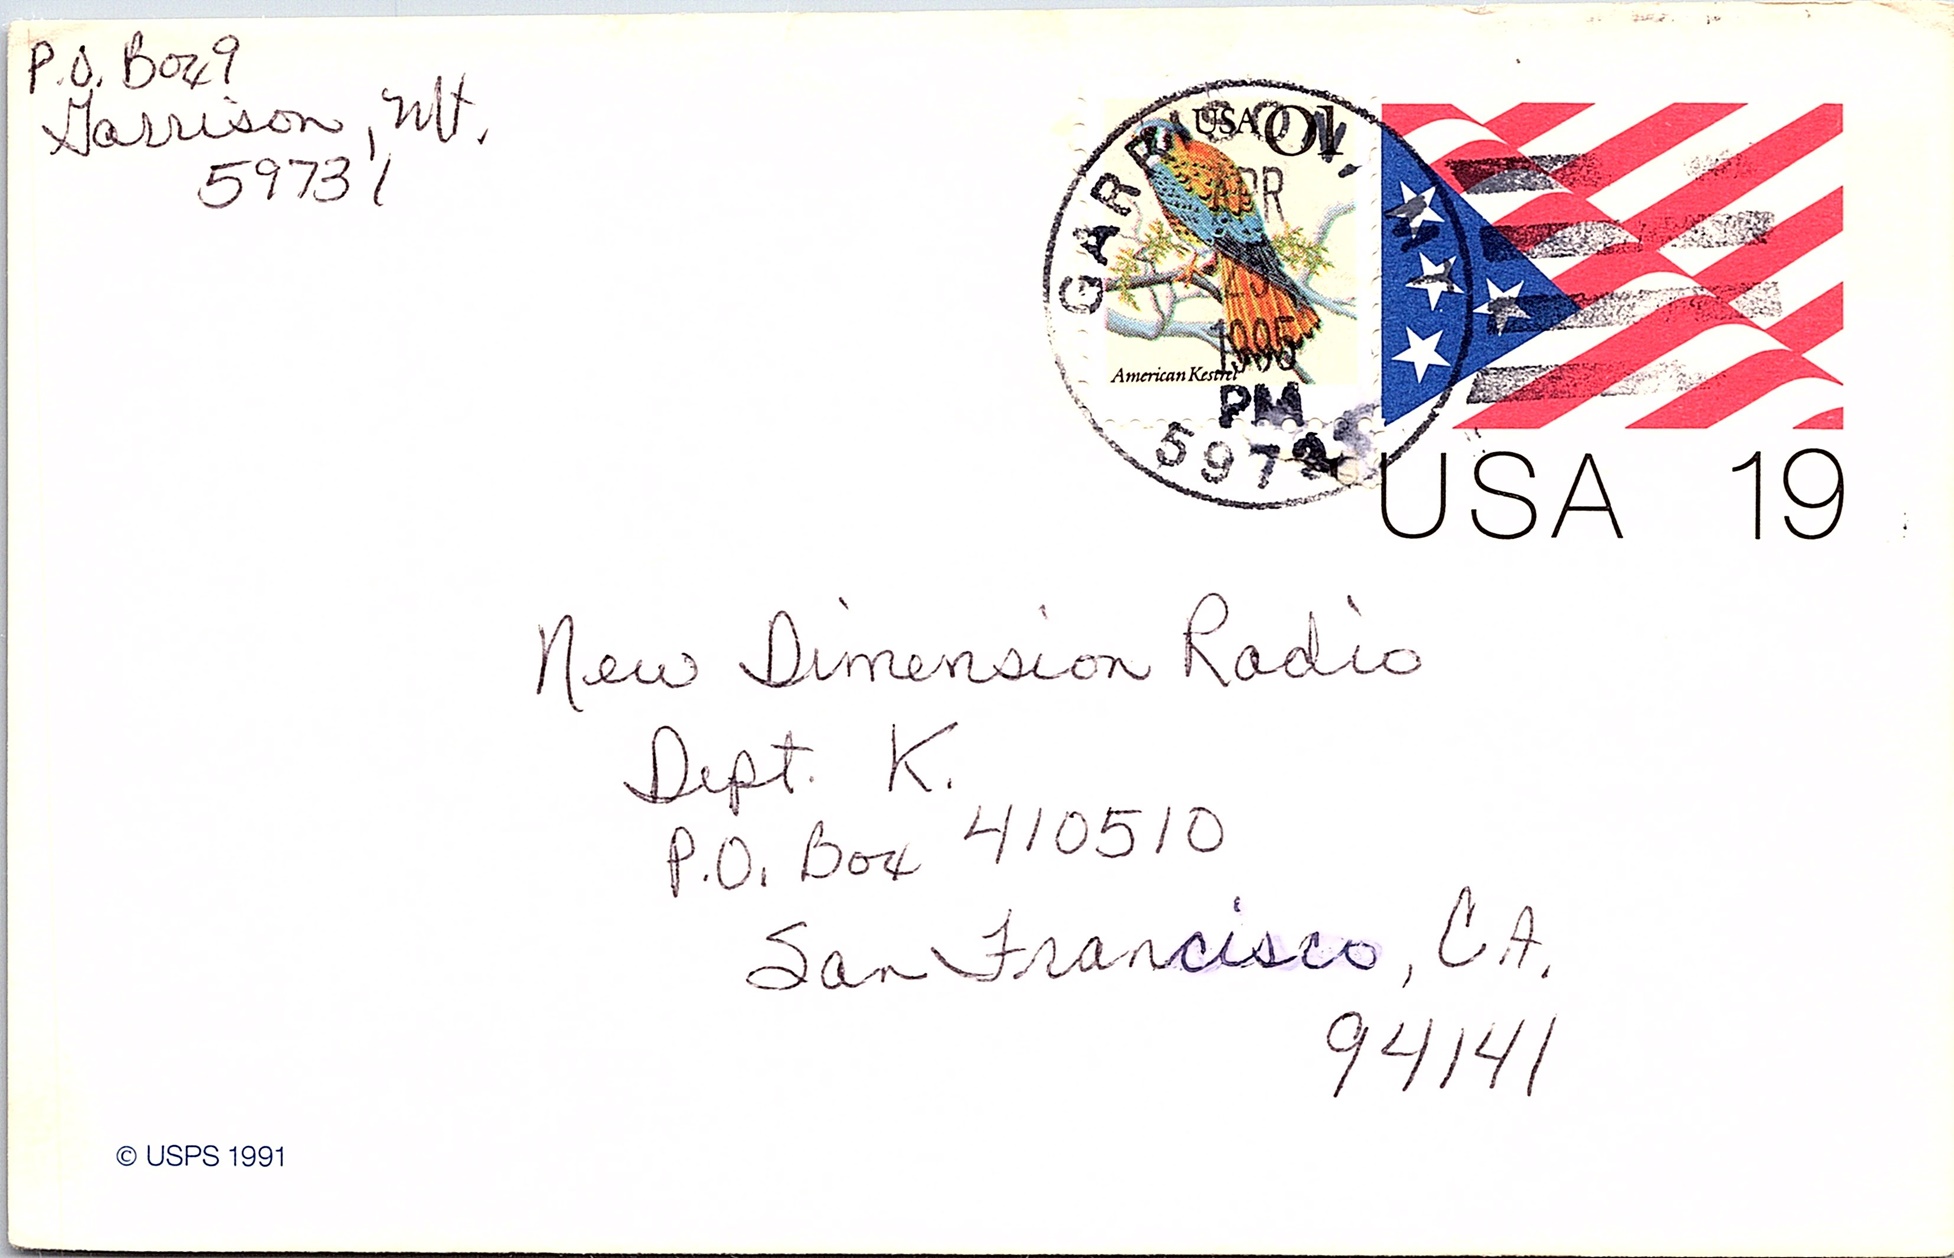 P.O. Box 9
Garrison, Mt.
59731
USA 01
American Kestrel
GARRISON, M
APR
1995
PM
USA 19
New Dimension Radio
Dept. K.
P.O. Box 410510
San Francisco, CA.
94141
© USPS 1991